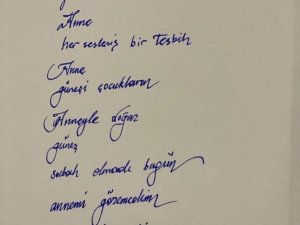 Anne
her sesleniş bir tesbih
Anne
güneşi çocukların
Anneyle doğar
güneş
sabah olmadı bugün
annemi göremedim